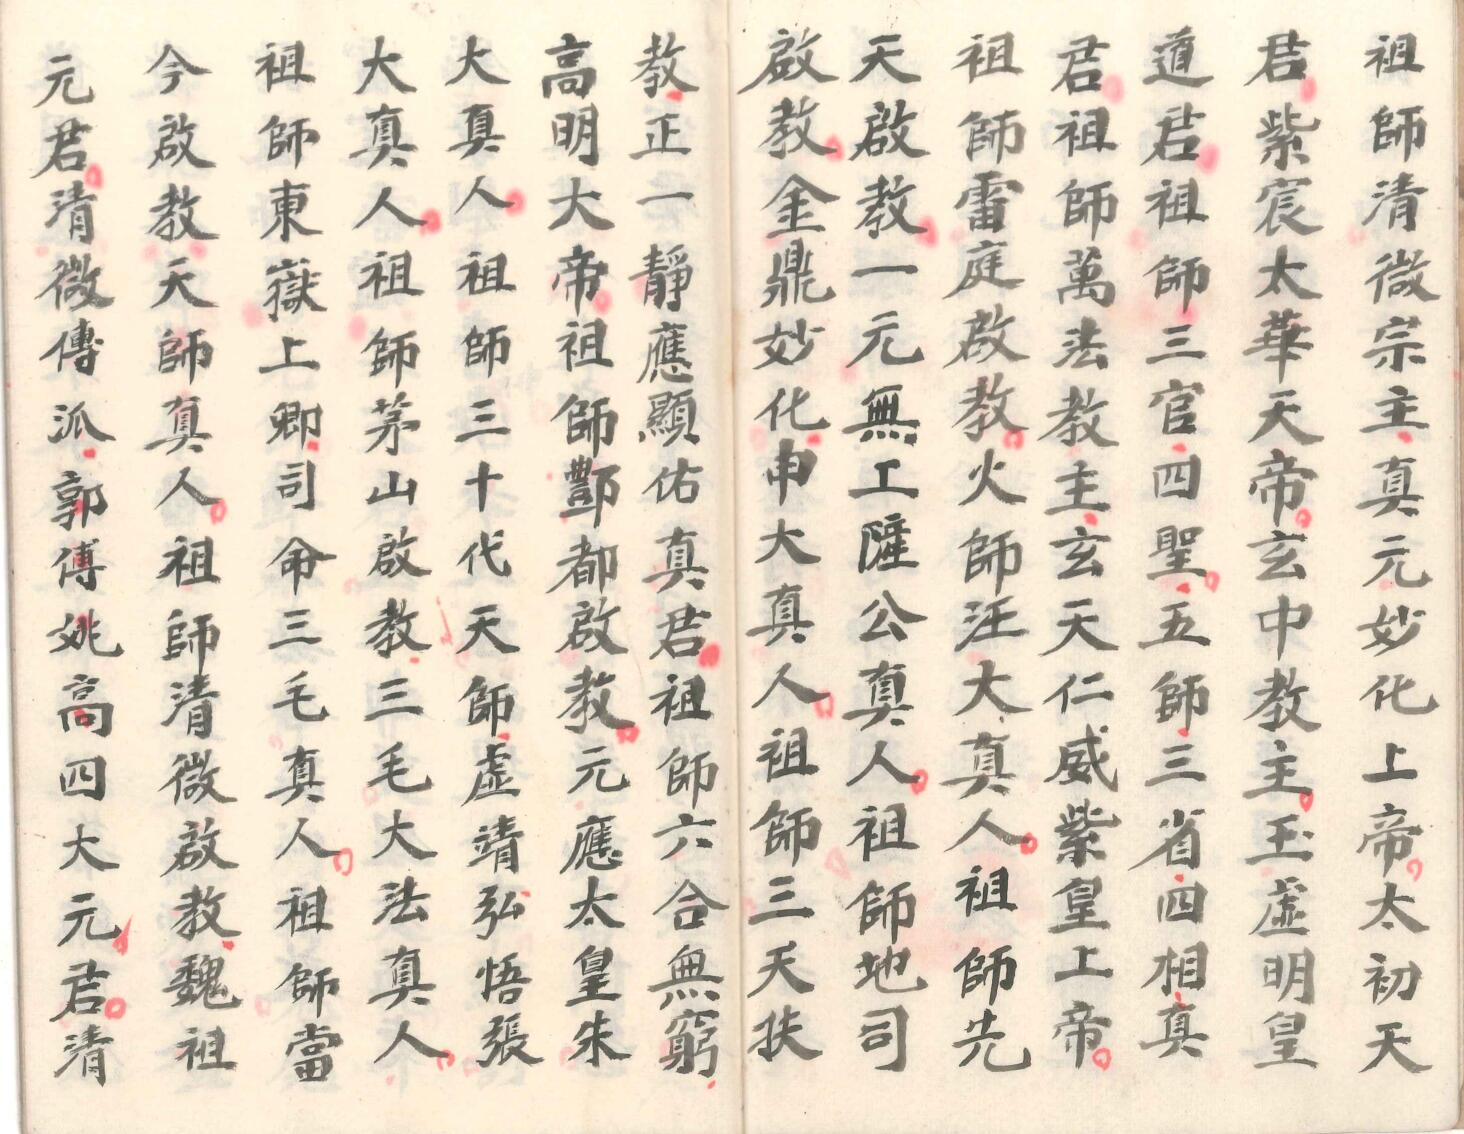 祖師清微宗主真元妙化上帝太初天
君紫宸太華天帝玄中教主玉虛明皇
道君祖師三官四聖五師三省四相真
君祖師萬法教主玄天仁威紫皇上帝
祖師雷庭啟教火師汪大真人祖師先
天啟教一元無工窿公真人祖師地司
啟教金鼎妙化申大真人祖師三天扶
教正一靜應顯佑真君祖師六合無窮
高明大帝祖師酆都啟教元應太皇朱
大真人祖師三十代天師虛靖弘悟張
大真人祖師茅山啟教三毛大法真人
祖師東嶽上卿司命三毛真人祖師當
今啟教天師真人祖師清微啟教魏祖
元君清微傳派郭傅姚高四大元君清